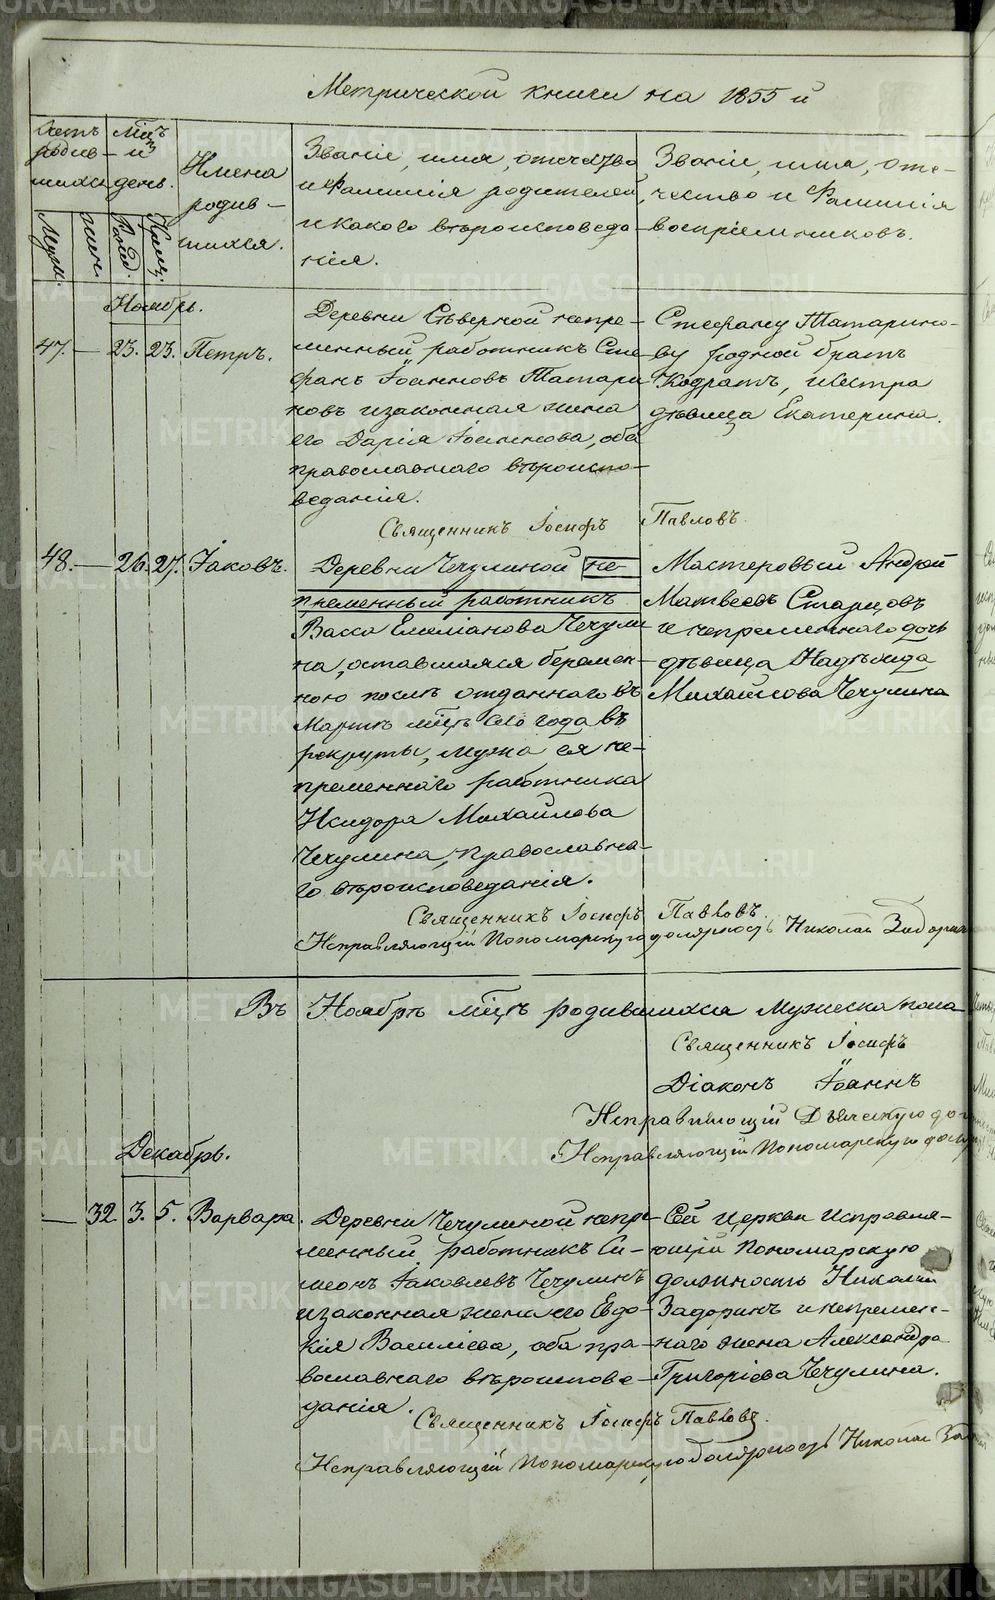 Метрической книги на 1855 й
Счетъ родив-шихся
Мѣцъ и день.
Имена родив-шихся.
Званіе, имя, отчество
и Фамилія родителей,
и какого вѣроисповеда-
нія.
Званіе, имя, оте-
чество и Фамилія
воспріемниковъ.
Муж.
жен.
Рожд.
Крещ.
Ноябрь.
47. — 23. 23. Петръ.
Деревни Сѣверной непре-
менный работникъ Сте
фанъ Іоанновъ Татари
новъ и законная жена
его Дарія Іосифова, оба
православнаго вѣроиспо-
веданія.
Стефану Татарино-
ву родной братъ
Кодратъ, и сестра
дѣвица Екатерина.
Священникъ Іосифъ Павловъ
48. — 26. 27. Іаковъ.
Деревни Чечулиной не-
пременный работникъ
Васса Емеліанова Чечули
на, оставшаяся беремен-
ною послѣ отданнаго въ
Мартѣ мѣцѣ сего года въ
рекруты, мужа ея не-
пременнаго работника
Исидора Михайлова
Чечулина, православна-
го вѣроисповеданія.
Мастеровый Андрей
Матвеевъ Старцовъ
и непременнаго дочь
дѣвица Надѣжда
Михайлова Чечулина
Священникъ Іосифъ Павловъ.
Исправляющій Пономарскую должность Николай Задорин
Въ Ноябрѣ мѣцѣ родившихся мужеска пола
Священникъ Іосифъ
Діаконъ Іоаннъ
Исправляющій Дьяческую до
Исправляющій Пономарскую долж
Декабрь.
— 32 3. 5. Варвара.
Деревни Чечулиной непре-
менный работникъ Си-
меонъ Іаковлевъ Чечулинъ
и законная жена его Евдо-
кія Василіева, оба пра-
вославнаго вѣроисповѣ-
данія.
Сей церкви исправля-
ющій пономарскую
должность Николай
Задоринъ и непремен-
наго жена Александра
Григоріева Чечулина.
Священникъ Іосифъ Павловъ.
Исправляющій Пономарскую должность Николай За
METRIKI.GASO-URAL.RU